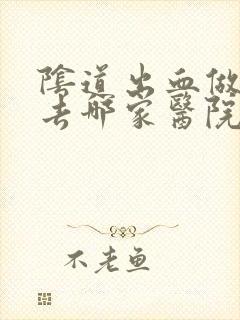 陰道出血做
去哪家醫院
不老鱼